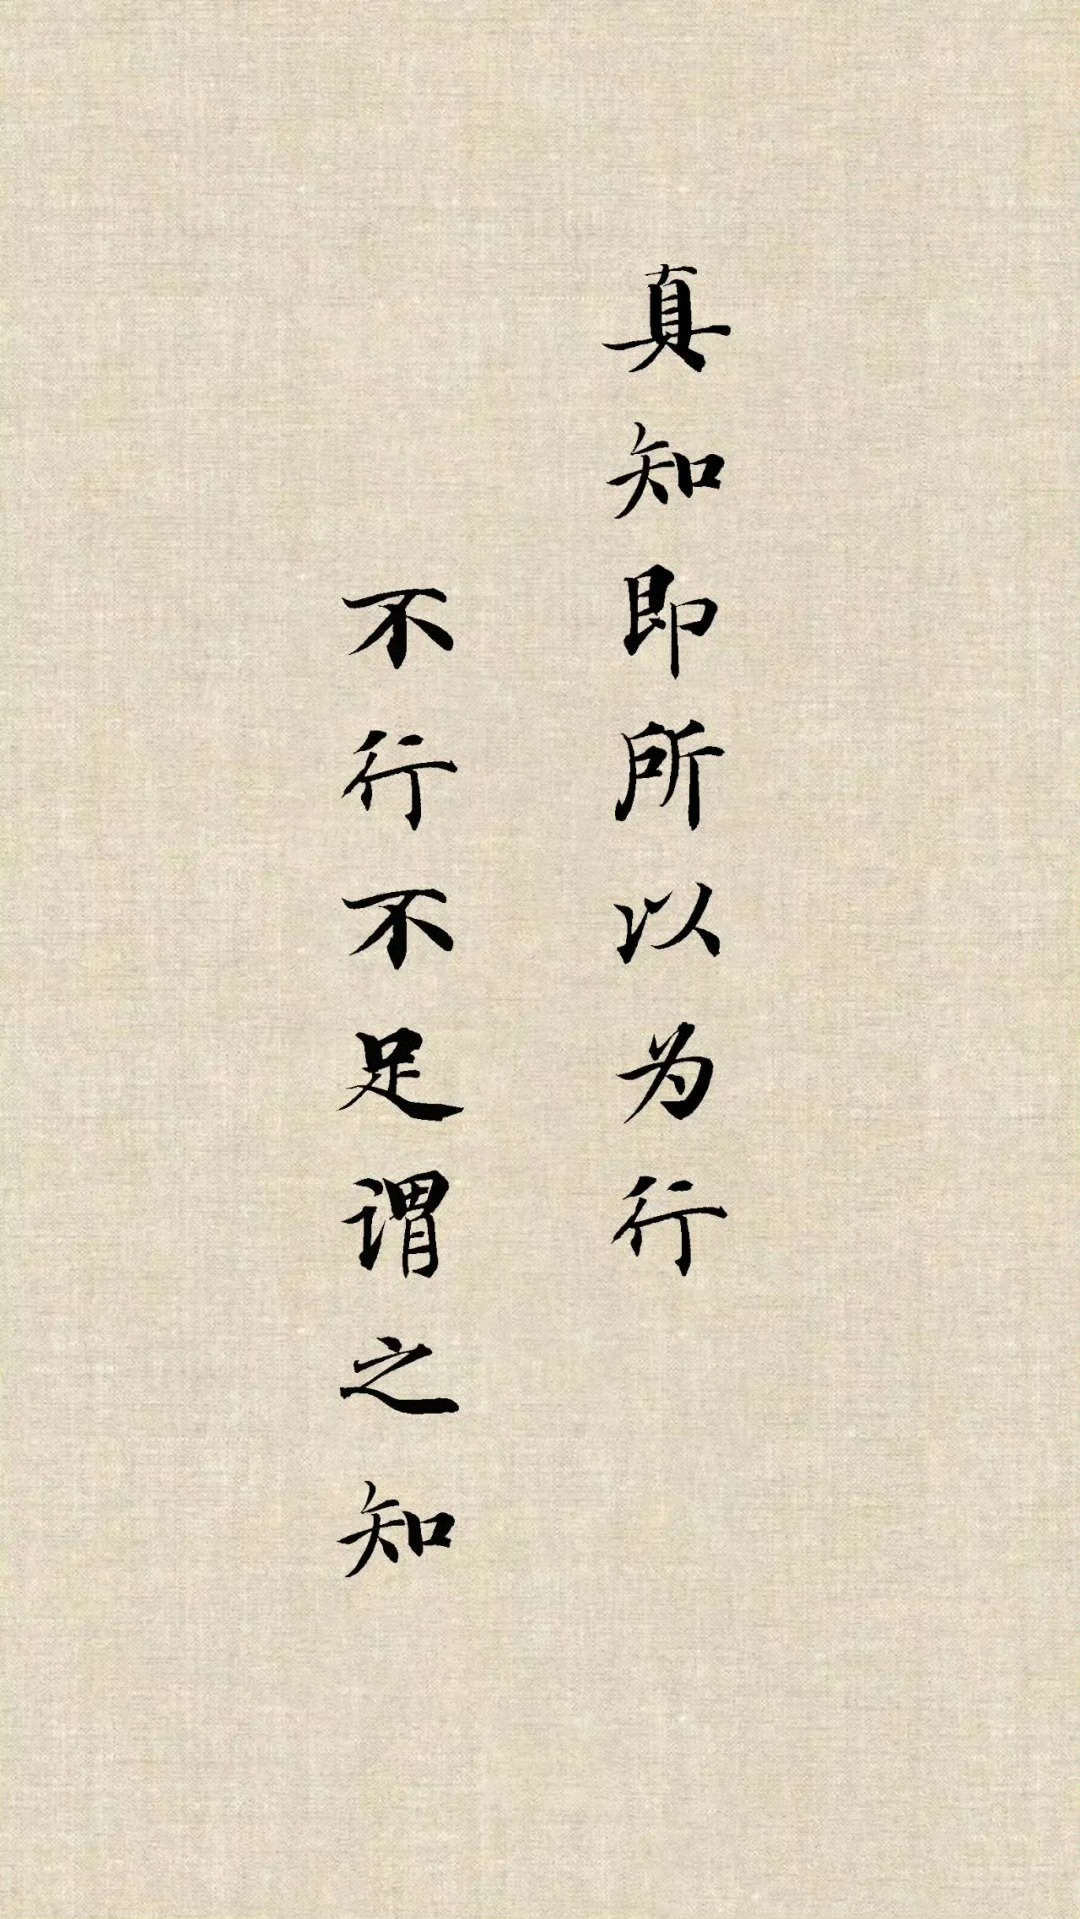 真知即所以为行
不行不足谓之知